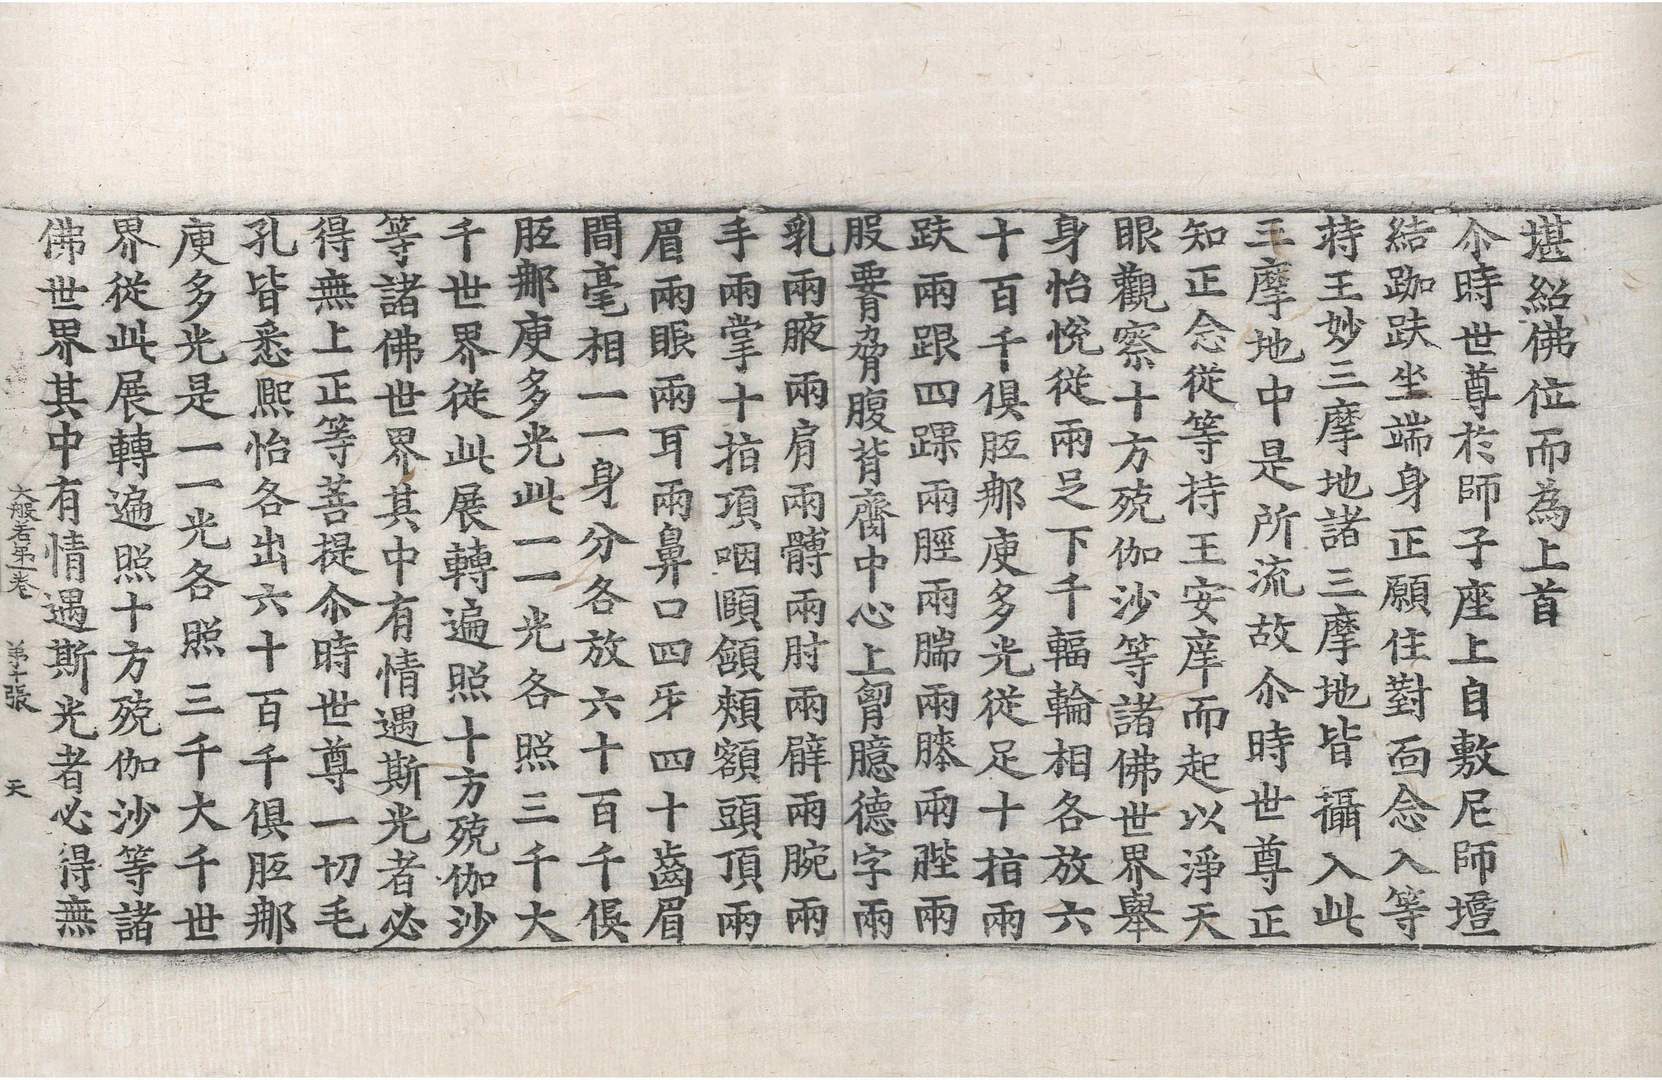 堪紹佛位而為上首
尒時世尊於師子座上自敷尼師壇
結跏趺坐端身正願住對面念入等
持王妙三摩地諸三摩地皆攝入此
三摩地中是所流故尒時世尊正
知正念從等持王安庠而起以淨天
眼觀察十方殑伽沙等諸佛世界舉
身怡悅從兩足下千輻輪相各放六
十百千俱胝那庾多光從足十指兩
趺兩跟四踝兩脛兩腨兩膝兩䏶兩
股𦝫脅腹背臍中心上胷臆德字兩
乳兩腋兩肩兩髆兩肘兩臂兩腕兩
手兩掌十指項咽頤頷頰額頭頂兩
眉兩眼兩耳兩鼻口四牙四十齒眉
間毫相一一身分各放六十百千俱
胝那庾多光此一一光各照三千大
千世界從此展轉遍照十方殑伽沙
等諸佛世界其中有情遇斯光者必
得無上正等菩提尒時世尊一切毛
孔皆悉熙怡各出六十百千俱胝那
庾多光是一一光各照三千大千世
界從此展轉遍照十方殑伽沙等諸
佛世界其中有情遇斯光者必得無
大般若第一卷 第十張 天